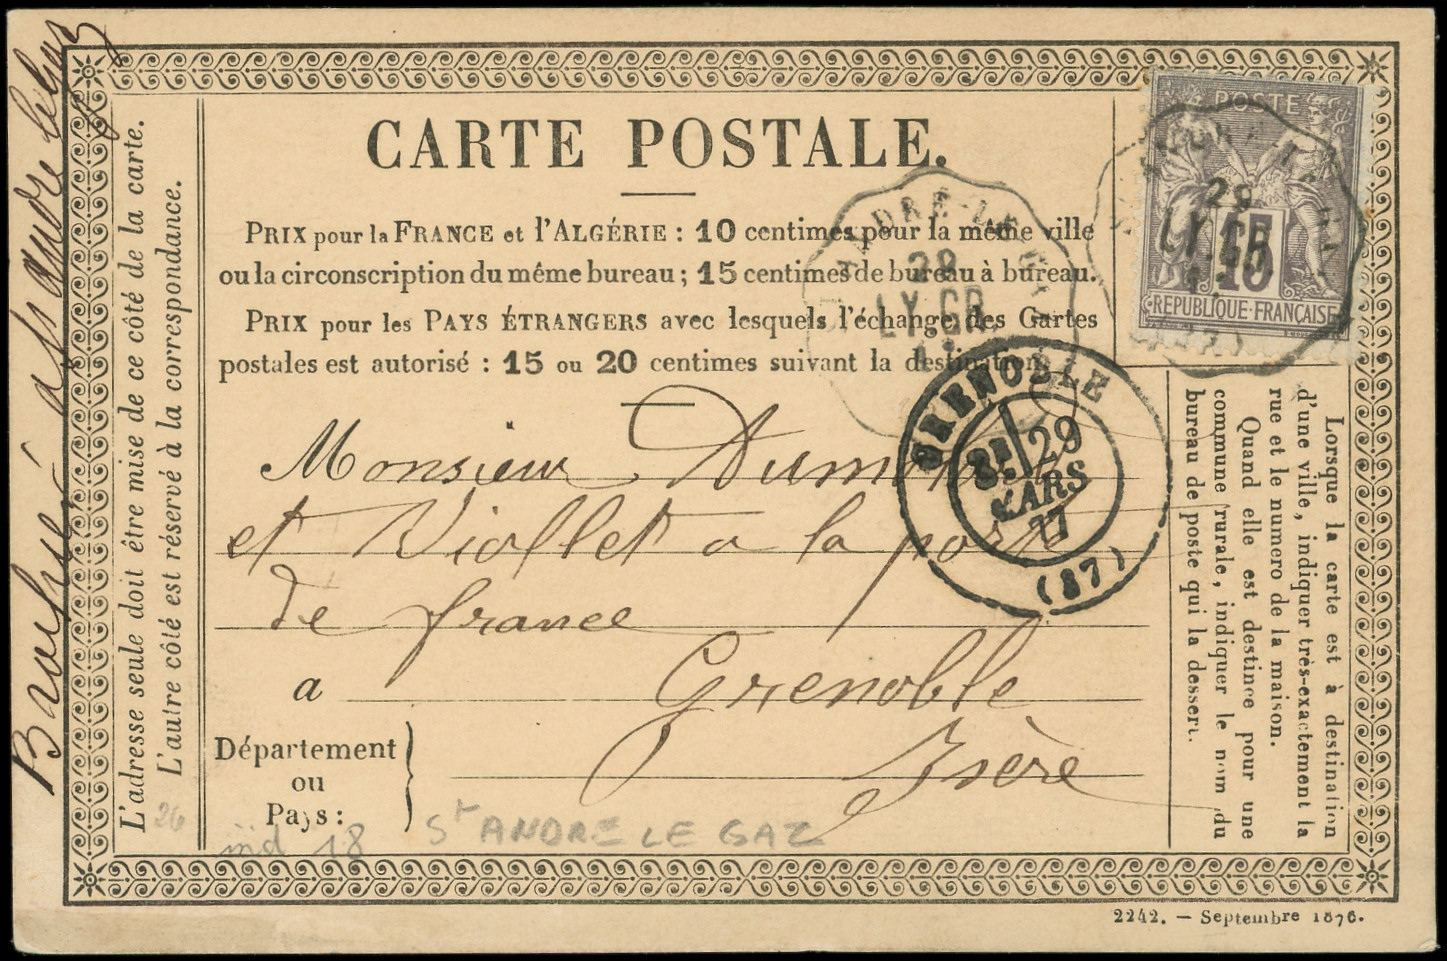 CARTE POSTALE.
PRIX pour la FRANCE et l'ALGÉRIE : 10 centimes pour la même ville
ou la circonscription du même bureau ; 15 centimes de bureau à bureau.
PRIX pour les PAYS ÉTRANGERS avec lesquels l'échange des Cartes
postales est autorisé : 15 ou 20 centimes suivant la destination.
Monsieur Dumont
et Viallet a la porte
de france
a Grenoble
Département
ou
Pays :
Isère
ind 18 St ANDRE LE GAZ
26
L'adresse seule doit être mise de ce côté de la carte.
L'autre côté est réservé à la correspondance.
POSTE
15
REPUBLIQUE FRANCAISE
29
LY.GR.
ANDRE-LE-G
29
LY.GR.
GRENOBLE
29
MARS
77
(37)
Lorsque la carte est à destination
d'une ville, indiquer très-exactement la
rue et le numero de la maison.
Quand elle est destinée pour une
commune rurale, indiquer le nom du
bureau de poste qui la dessert.
2242. — Septembre 1876.